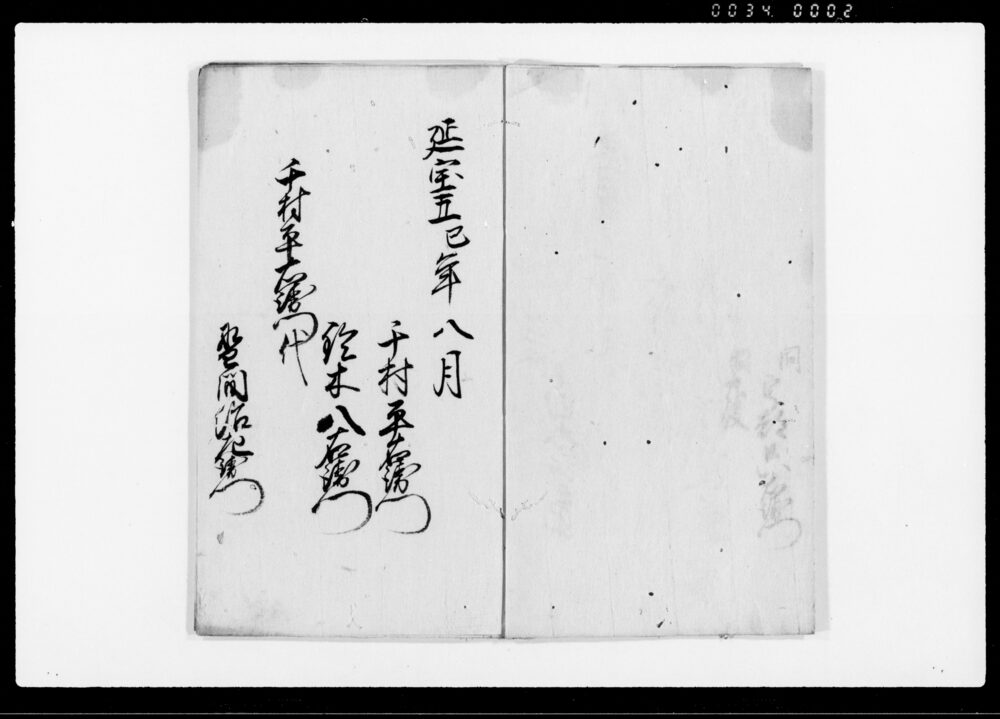 0034 0002
延宝五巳年八月
千村平右衛門
鈴木八右衛門
千村平右衛門代
間治右衛門